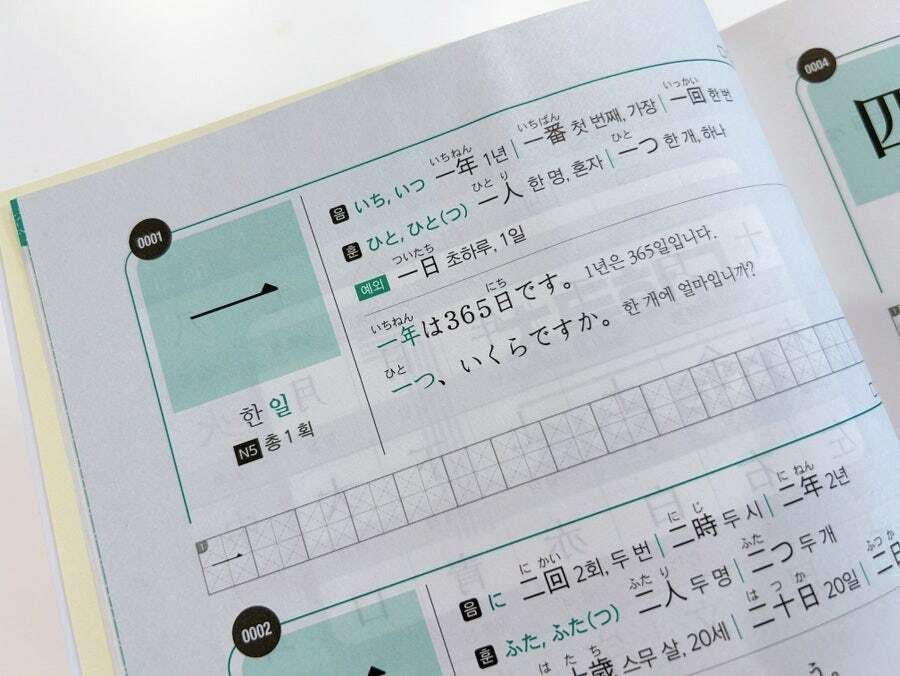 0001
一
한 일
N5 총 1획
음 いち, いつ 一年 1년 | 一番 첫 번째, 가장 | 一回 한 번
いちねん いちばん いっかい
훈 ひと, ひと(つ) 一人 한 명, 혼자 | 一つ 한 개, 하나
ひとり ひと
예외 一日 초하루, 1일
ついたち
一年は365日です。 1년은 365일입니다.
いちねん にち
一つ、いくらですか。 한 개에 얼마입니까?
ひと
1 一
0002
음 に 二回 2회, 두 번 | 二時 두 시 | 二年 2년
に かい に じ に ねん
훈 ふた, ふた(つ) 二人 두 명 | 二つ 두 개
ふたり ふた
歳 스무 살, 20세 | 二十日 20일
はたち はつか
ふつか
0004